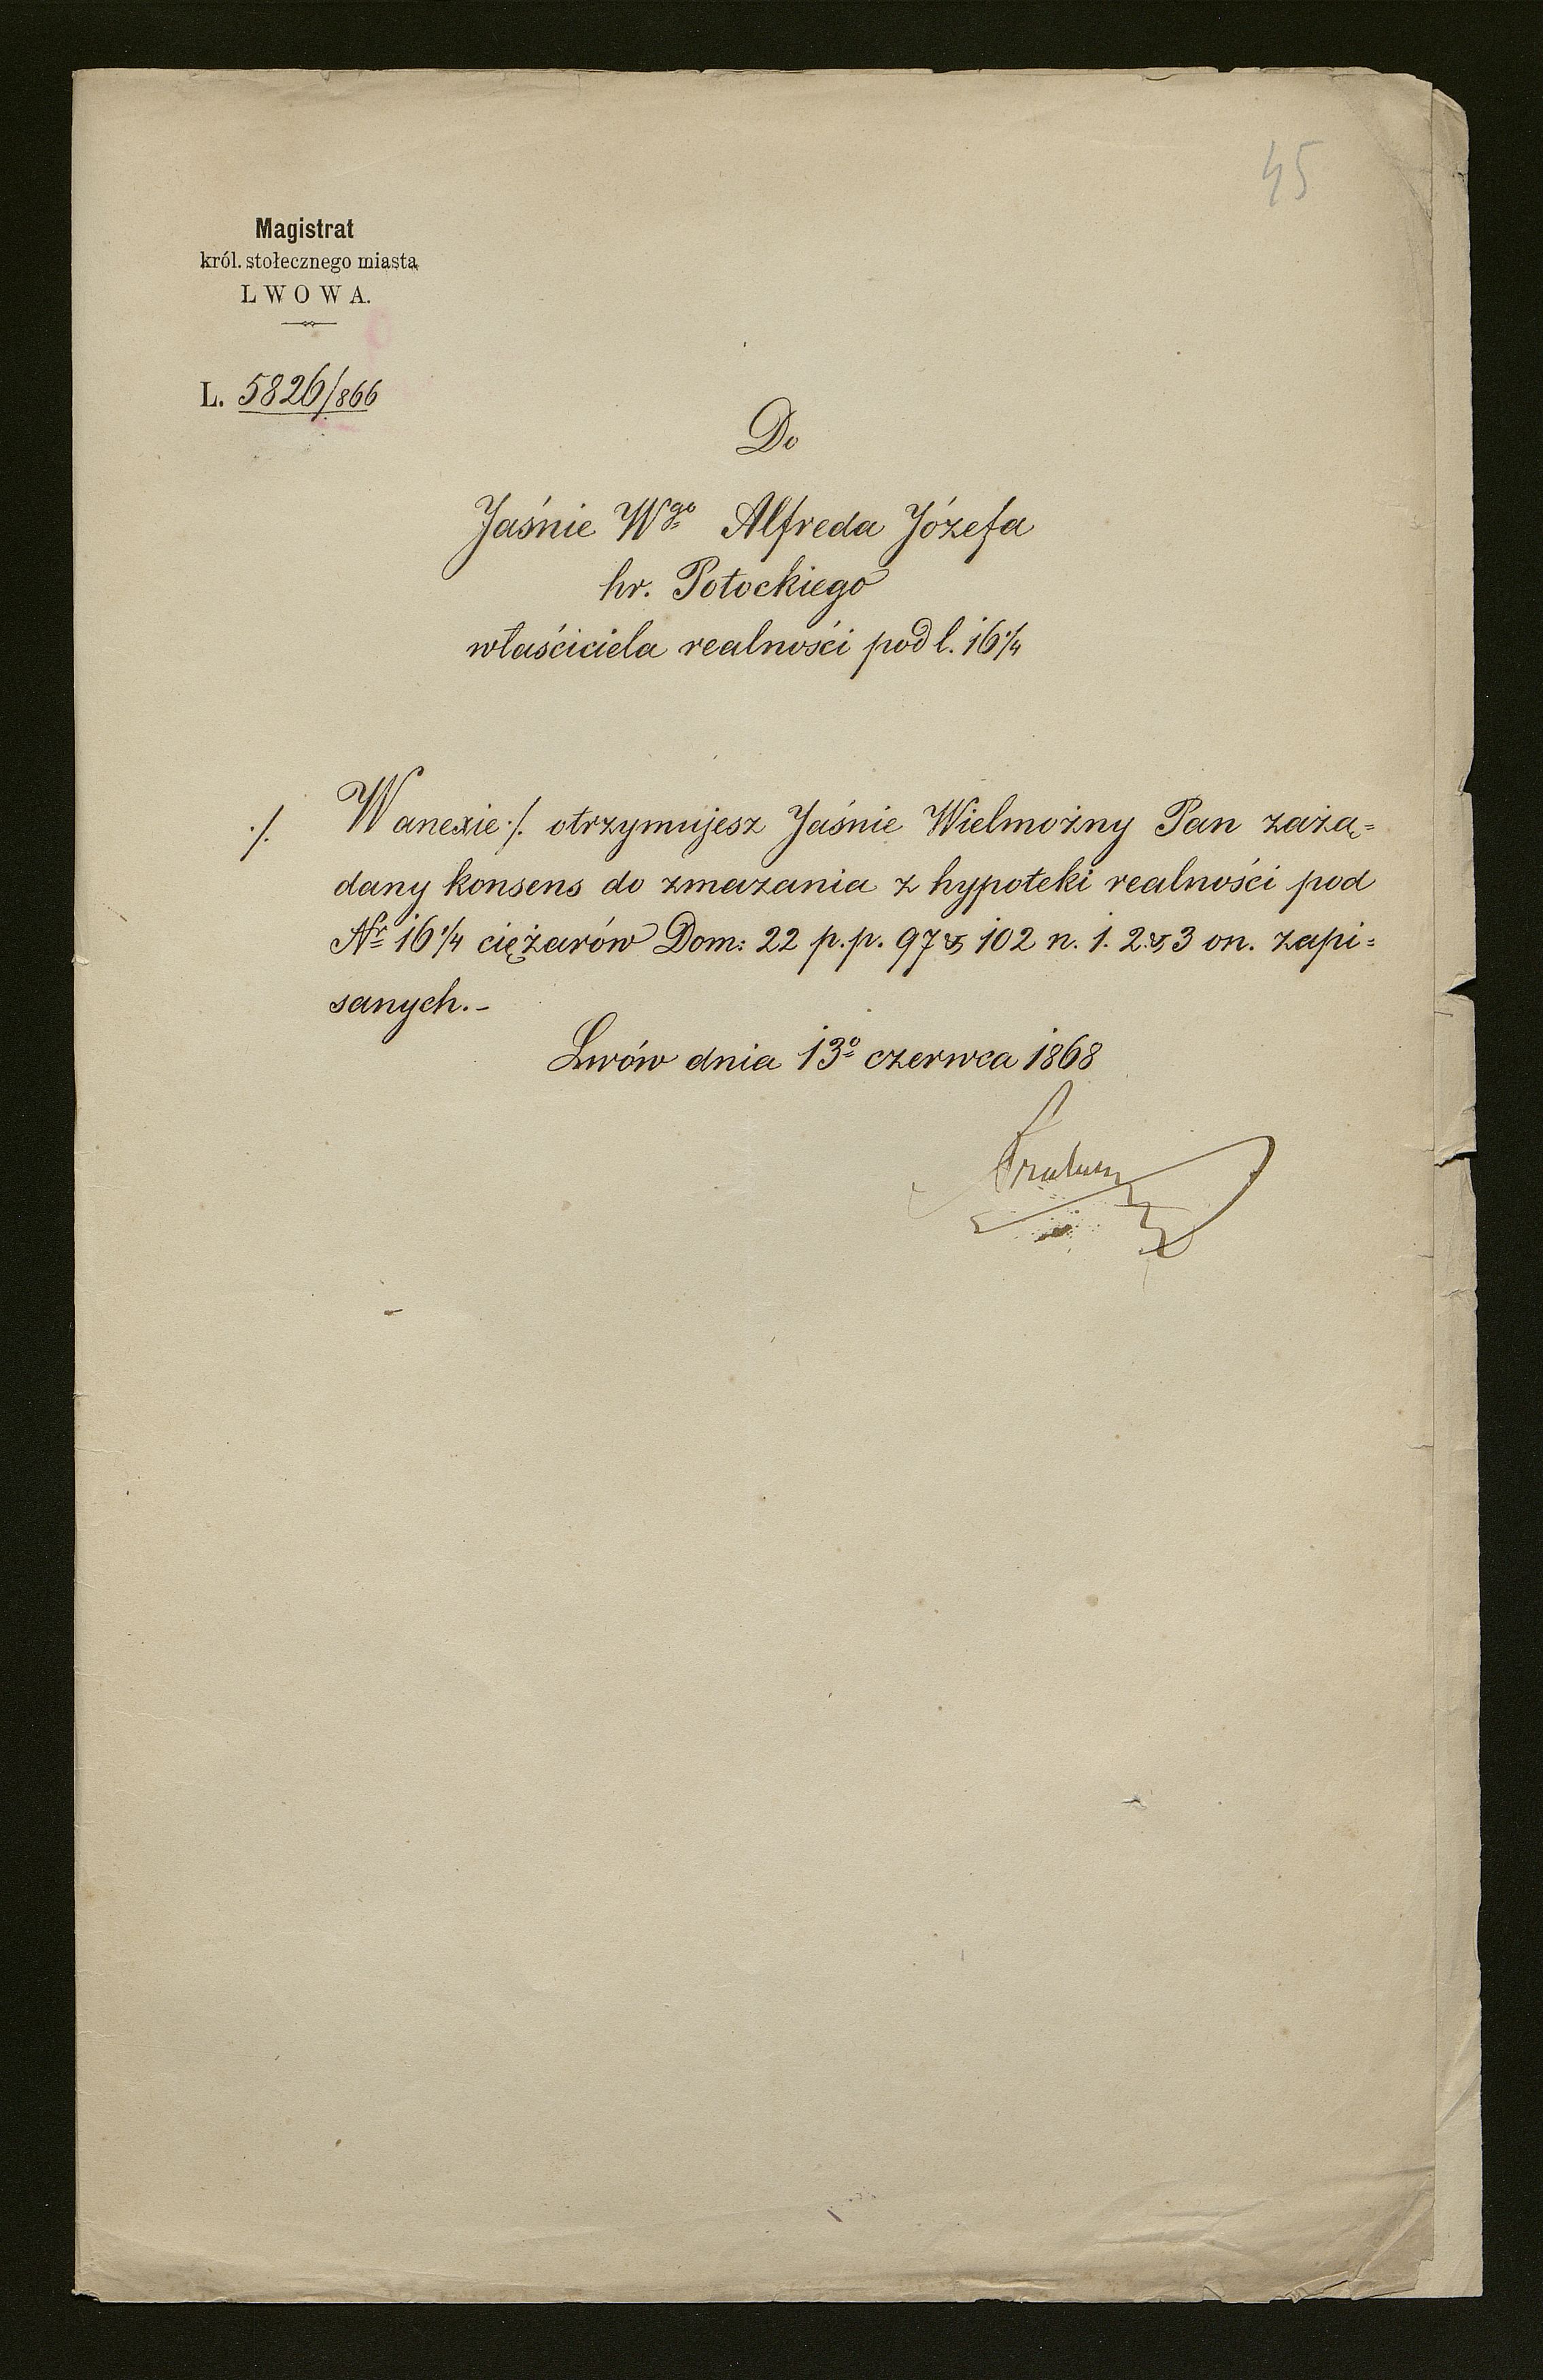 45
Magistrat
król. stołecznego miasta
LWOWA.
L. 5826/866
Do
Jaśnie Wgo Alfreda Józefa
hr. Potockiego
właściciela realności pod l. 16 1/4
./. W anexie ./. otrzymujesz Jaśnie Wielmożny Pan zażą=
dany konsens do zmazania z hypoteki realności pod
Nr 16 1/4 ciężarów Dom: 22 p.p. 97 & 102 n. 1. 2 & 3 on. zapi=
sanych.-
Lwów dnia 13o czerwca 1868